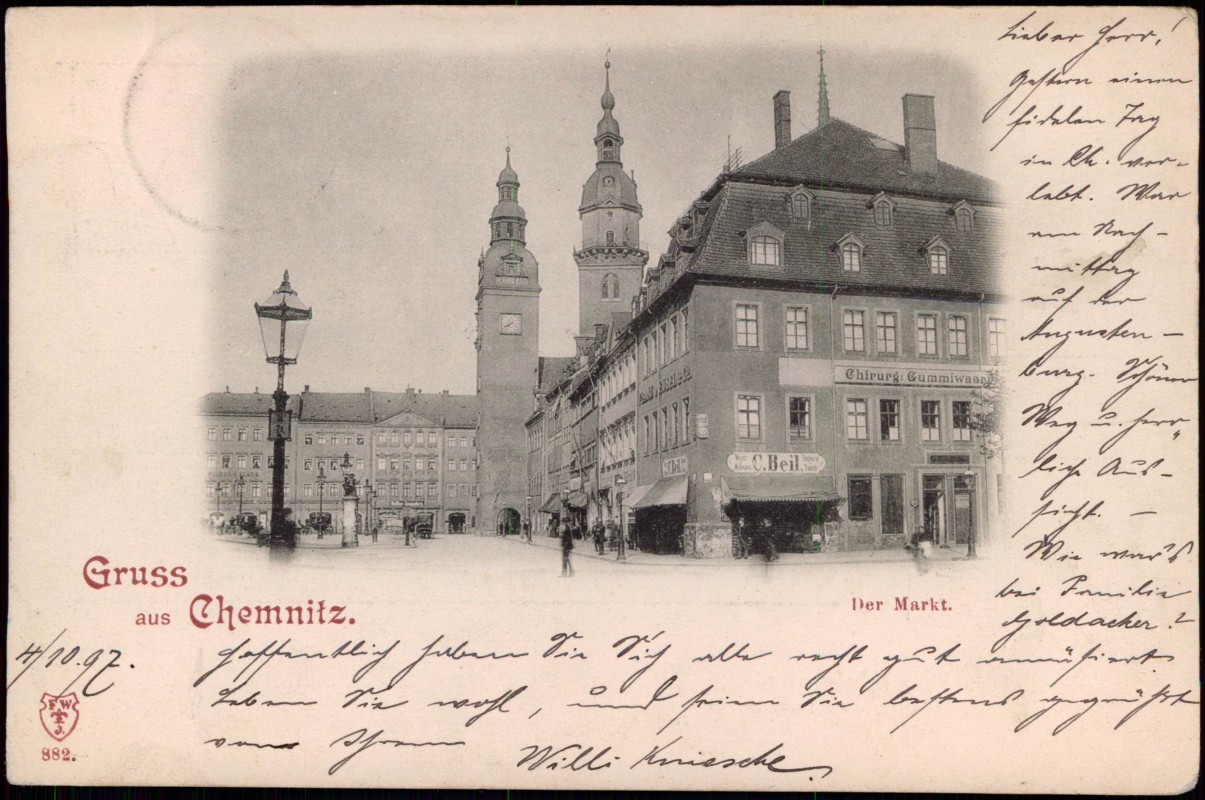 Lieber Herr!
Gestern einen
fidelen Tag
in Ch. ver-
lebt. War
am Nach-
mittag
auf der
Augusten-
burg. Schöner
Weg u. herr-
liche Aus-
sicht. —
Wie war's
bei Familie
Goldacker?
Chirurg: Gummiwaar
C. Beil.
Gruss
aus Chemnitz.
Der Markt.
4/10.97.
Hoffentlich haben Sie Sich alle recht gut amüsiert.
Leben Sie wohl, und seien Sie bestens gegrüßt
von Ihrem
Willi Kniesche.
F W
J.
882.